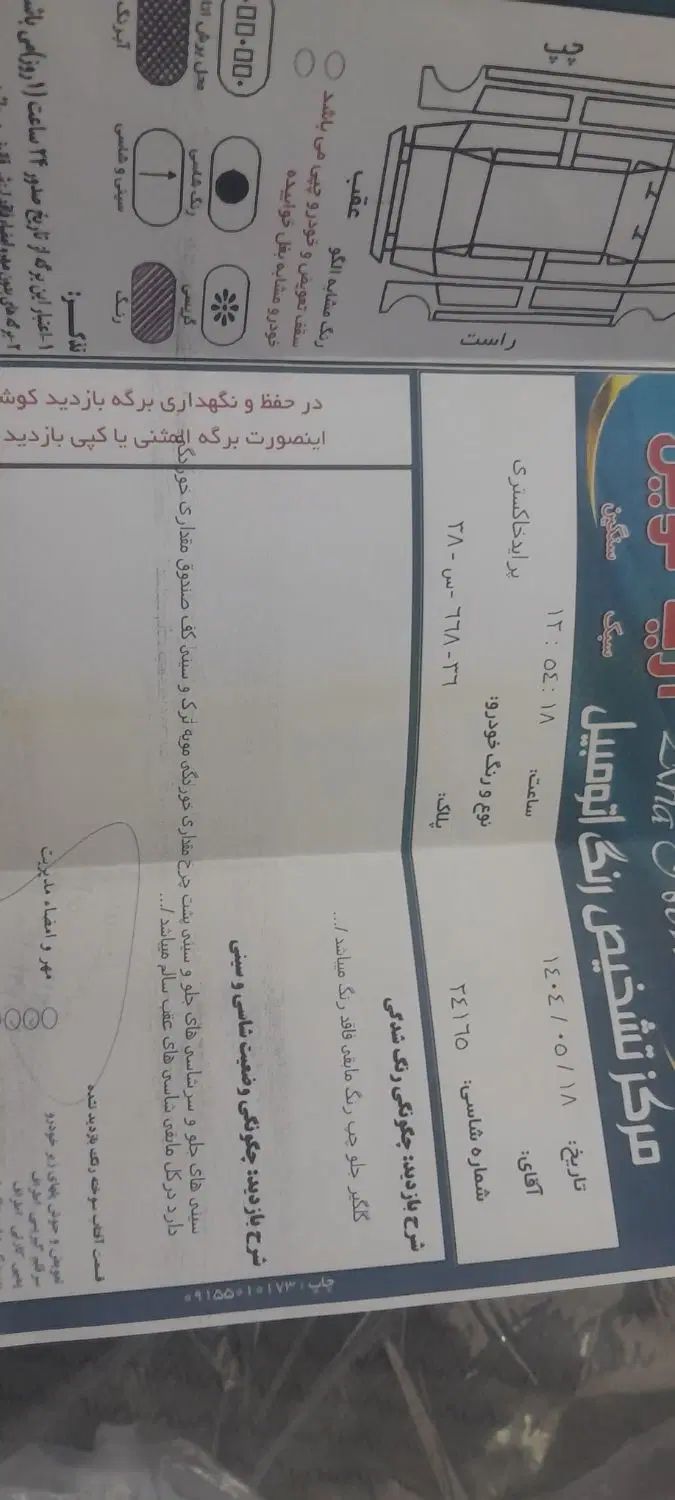 مرکز تشخیص رنگ اتومبیل
سبک
سنگین
تاریخ: ١٤٠٤ / ٠٥ / ١٨
ساعت: ١٣ : ٥٤ : ١٨
آقای:
نوع و رنگ خودرو: پراید خاکستری
شماره شاسی: ٣٤١٦٥
پلاک: ٣٦ - ٦٦٨ - س - ٣٨
شرح بازدید: چگونگی رنگ شدگی
گلگیر جلو چپ رنگ مابقی فاقد رنگ میباشد /...
شرح بازدید: چگونگی وضعیت شاسی و سینی
سینی های جلو و سرشاسی های جلو و سینی پشت چرخ مقداری خوردگی مویه ترک و سینی کف صندوق مقداری خوردگی
دارد در کل مابقی شاسی های عقب سالم میباشد /...
مهر و امضاء مدیریت
قسمت آفتاب سوخته رنگ بازدید نشده
تعویض و جوش پلهای زیر خودرو
چاپ: ۰۹۱۵۵۰۱۰۱۷۳
در حفظ و نگهداری برگه بازدید کوش
اینصورت برگه المثنی یا کپی بازدید
چپ
عقب
راست
رنگ مشابه الگو
سقف تعویض و خودرو چپی می باشد
خودرو مشابه بغل خوابیده
محل برش
رنگ شاسی
گریسی
آبرنگ
سینی و شاسی
رنگ
تذکر:
۱-اعتبار این برگه از تاریخ صدور ۲۴ ساعت (۱ روز) می باشد